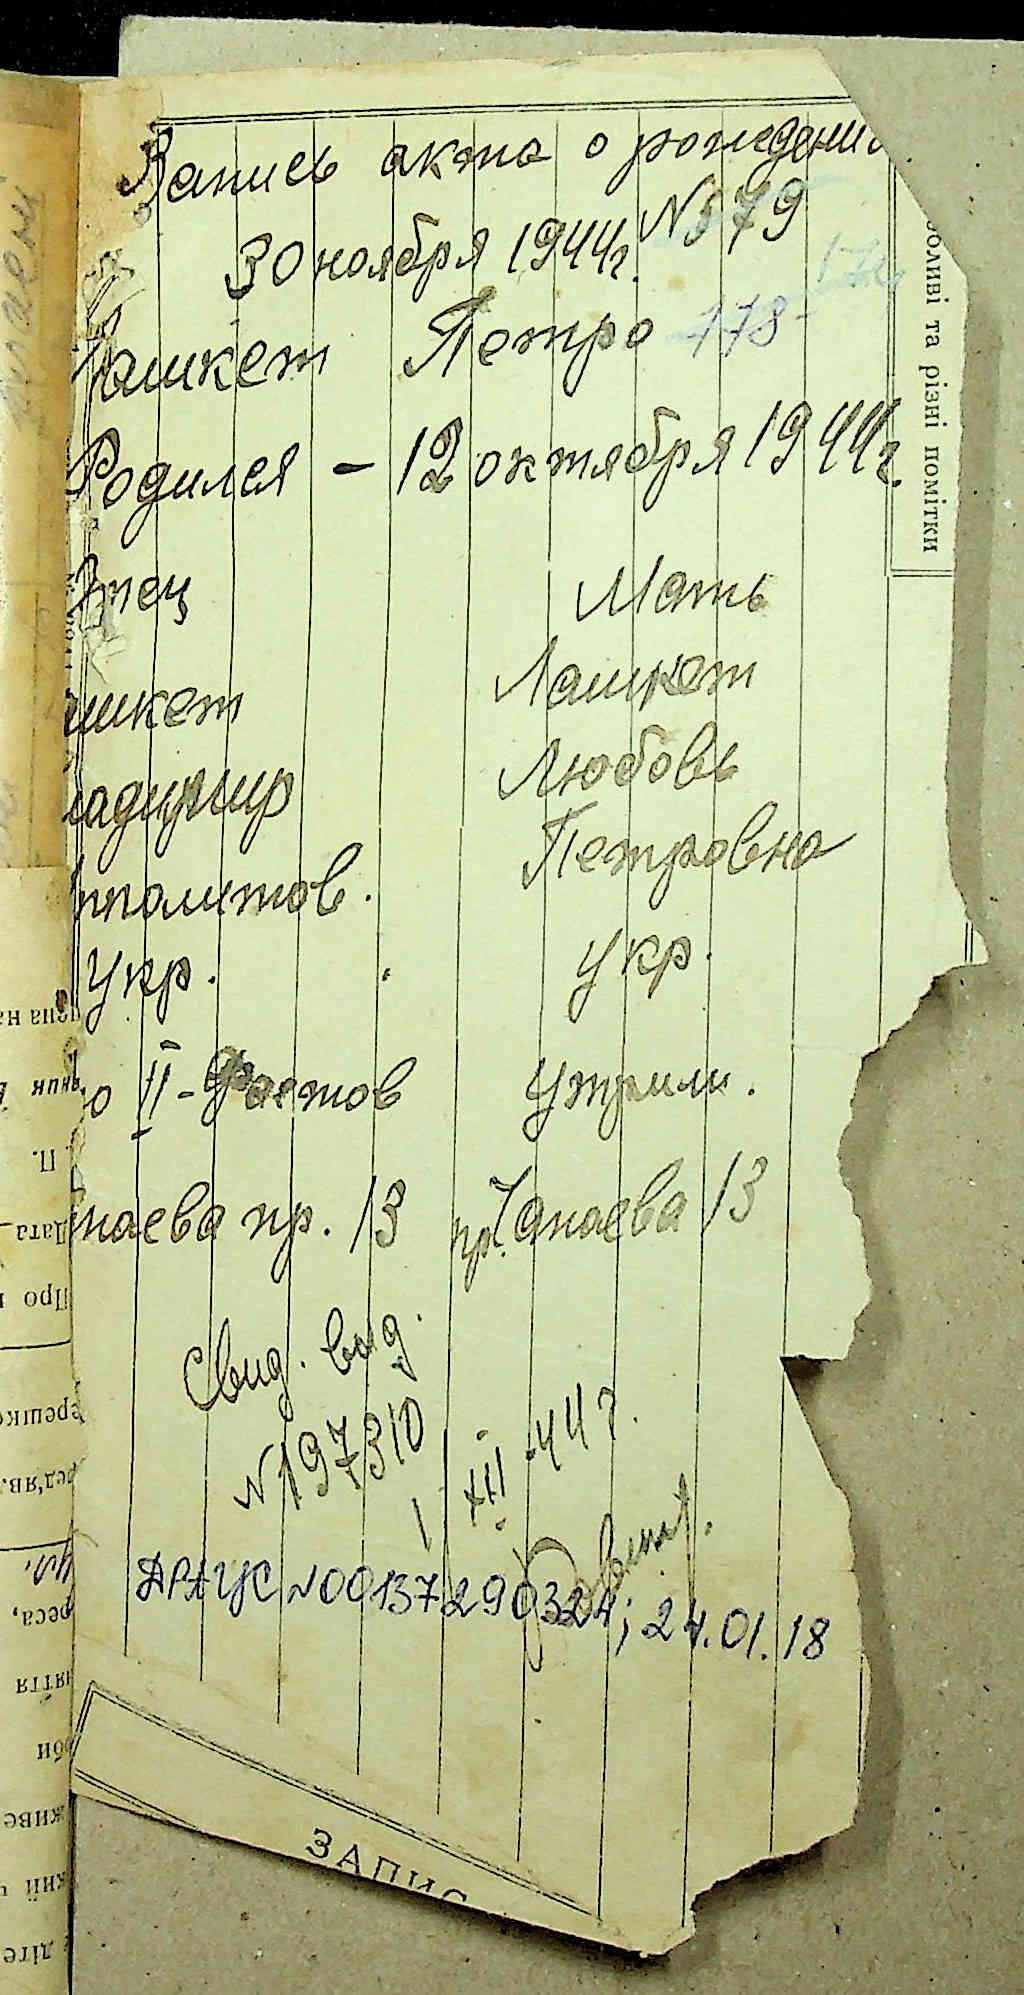 Запись акта о рождении
30 ноября 1944г. N 579
178
Лашкет Петро
Родился - 12 октября 1944г.
Отец Мать
ашкет Лашкет
ладимир Любовь
Ипполитов. Петровна
Укр. Укр.
о II - Фастов
паева пр. 13 пр. Чапаева 13
Свид. выд.
N 197310
1 XII - 44 г.
ДРАЦС N 00137290324; 24.01.18
оливі та різні помітки
ЗАПИС
П.
Дата
Про